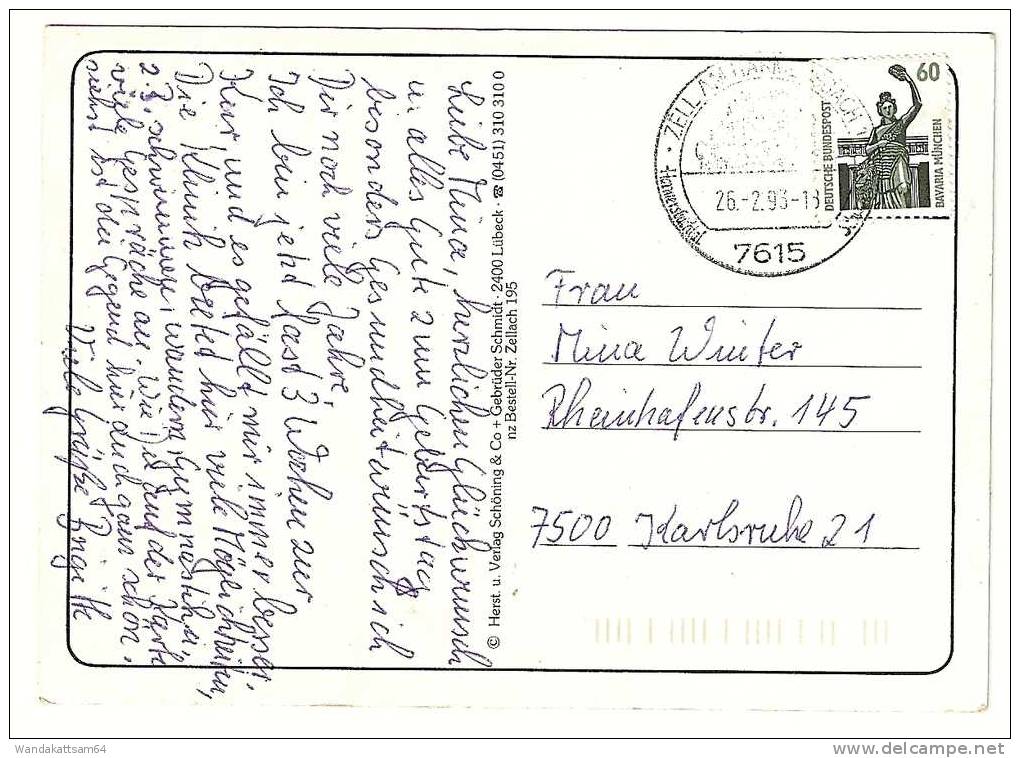 Liebe Mina, herzlichen Glückwunsch
u. alles Gute zum Geburtstag
besonders Gesundheit wünsch ich
Dir noch viele Jahre.
Ich bin jetzt fast 3 Wochen zur
Kur und es gefällt mir immer besser.
Die Klinik bietet hier viele Möglichkeiten,
z.B. schwimmen, wandern, Gymnastik,
viele Gespräche an. Wie Du auf der Karte
siehst ist die Gegend hier auch ganz schön.
Viele Grüße Brigitte
© Herst. u. Verlag Schöning & Co + Gebrüder Schmidt · 2400 Lübeck · ☎ (0451) 310 310 0
nz Bestell-Nr. Zellach 195
ZELL AM HARMERSBACH 1
26.-2.93-18
7615
60
DEUTSCHE BUNDESPOST
BAVARIA MÜNCHEN
Frau
Mina Winter
Rheinhafenstr. 145
7500 Karlsruhe 21
Wandakattsam64
www.delcampe.net